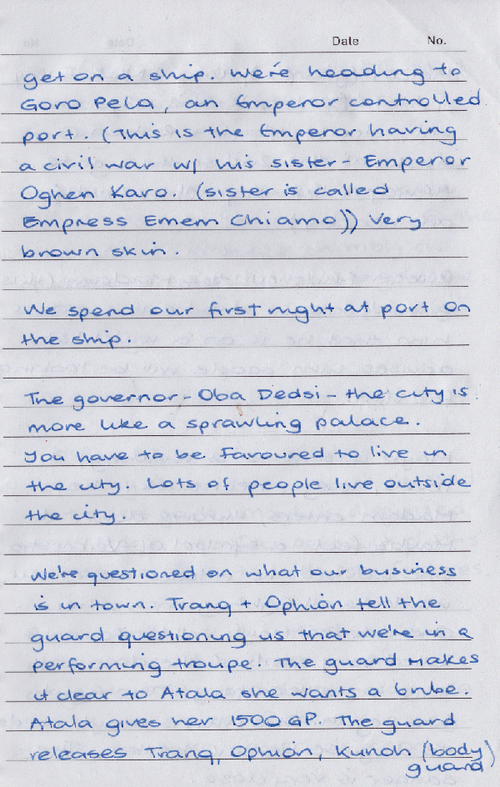 Date No.
get on a ship. We're heading to
Goro Pela, an Emperor controlled
port. (This is the Emperor having
a civil war w/ his sister - Emperor
Oghen Karo. (sister is called
Empress Emem Chiamo)) Very
brown skin.
We spend our first night at port on
the ship.
The governor - Oba Dedsi - the city is
more like a sprawling palace.
You have to be favoured to live in
the city. Lots of people live outside
the city.
We're questioned on what our business
is in town. Trang + Ophion tell the
guard questioning us that we're in a
performing troupe. The guard makes
it clear to Atala she wants a bribe.
Atala gives her 1500 GP. The guard
releases Trang, Ophion, Kunoh (body
guard)